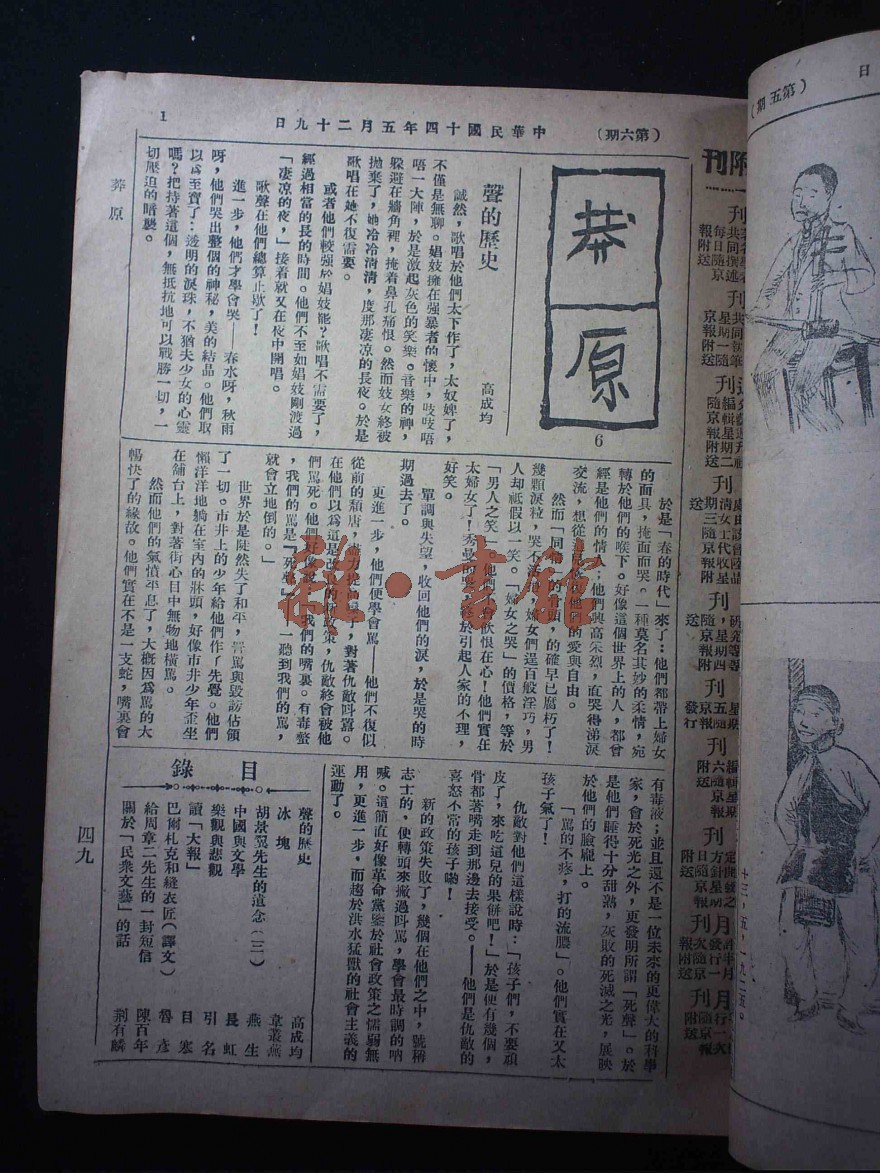 中華民國十四年五月二十九日
（第六期）
1
莽原
6
聲的歷史
高成均
誠然，歌唱於他們太下作了，太奴婢了，
不僅是無聊。娼妓擁在強暴者的懷中，吱吱唔
唔一大陣，於是激起灰色的笑樂。音樂的神，
躲避在牆角裡，掩着鼻孔痛恨。然而妓女終被
拋棄了，她冷冷清清，度那凄凉的長夜。於是
歌唱在她不復需要。
或者他們較強於娼妓能？歌唱不需要了，
經過相當的長的時間。他們不至如娼妓剛渡過
「凄凉的夜，」接着就又在夜中開唱。
歌聲在他們總算止歇了！
進一步，他們才學會哭——春水呀，秋雨
呀，他們哭出整個的神秘，美的結晶。他們取
以爲至寶了：透明的淚珠，不猶夫少女的心靈
嗎？把持著這個，無抵抗地可以戰勝一切，一
切壓迫的暗襲。
於是「春的時代」來了：他們都帶上婦女
的面具，掩面而哭。一種莫名其妙的柔情，宛
轉於他們的喉下。好像這個世界上的人，都曾
經是他們的情
；他們興高采烈，直哭得涕淚
交流，想從
他們的愛與自由。
然而「同
的骨頭，的確早已腐朽了！
幾顆淚粒，哭不
婦女們逞百般淫巧，男
人却祇假以一笑。「婦女之哭」的價格，等於
「男人之笑」
他們
欣恨在心！他們實在
太婦女了！秀曼的
終於引起人家的不理，
好笑。
單調與失望，收回他們的淚，於是哭的時
期過去了。
更進一步，他們便學會罵——他們不復似
從前的頹唐，
對著仇敵叫囂。
在他們以爲這是改
政策，仇敵終會被他
們罵死。他們好像說：
我們的嘴裏。有毒螫
，我們的罵是「死聲」
一聽到我們的罵，
就會立地倒的。」
世界於是陡然失了和平，詈罵與毀謗佔領
了一切。市井上的少年給他們作了先覺。他們
懶洋洋地躺在室內的牀頭，好像市井少年歪坐
在舖台上，對著街心目中無物地橫罵。
然而他們的氣憤平息了，大概因爲罵的大
暢快了的緣故。他們實在不是一支蛇，嘴裏會
有毒液；並且還不是一位未來的更偉大的科學
家，會於死光之外，更發明所謂「死聲」。於
是他們睡得十分甜熟，灰敗的死滅之光，展映
於他們的臉龐上。
「罵的不疼，打的流膿」。他們實在又太
孩子氣了！
仇敵對他們這樣說時：「孩子們，不要頑
皮了，來吃這兒的果餅吧！」於是便有幾個，
膏都著嘴走到那邊去接受。——他們是仇敵的
喜怒不常的孩子嘞！
新的政策失敗了，幾個在他們之中，號稱
志士的，便轉頭來撇過叫罵，學會最時調的吶
喊。這簡直好像革命黨鑒於社會政策之儒弱無
用，更進一步，而趨於洪水猛獸的社會主義的
運動了。
目錄
聲的歷史　高成均
冰塊　韋叢蕪
胡景翼先生的遺念（三）　燕生
中國與文學　長虹
樂觀與悲觀　引名
讀「大報」　目寒
巴爾札克和縫衣匠（譯文）　魯彥
給周章二先生的一封短信　陳百年
關於「民衆文藝」的話　荆有麟
莽原
四九
附刊
日
（第五期）
十三，五，一九二五。
雜·書館